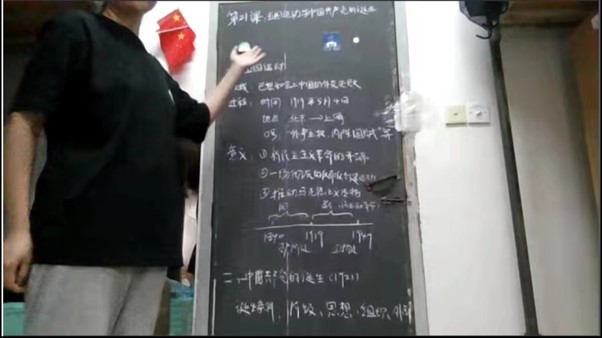 第21课:五四运动与中国共产党的诞生
五四运动
巴黎和会上中国的外交失败
过程: 时间 1919年5月4日
地点 北京→上海
口号 "外争主权,内除国贼"等
意义: ①新民主主义革命的开端
②一场彻底的反帝反封建
③推动马克思主义
旧 新
1840 1919 1949
二、中国共产党的诞生(1921)
诞生条件, 阶级、思想、组织、外部